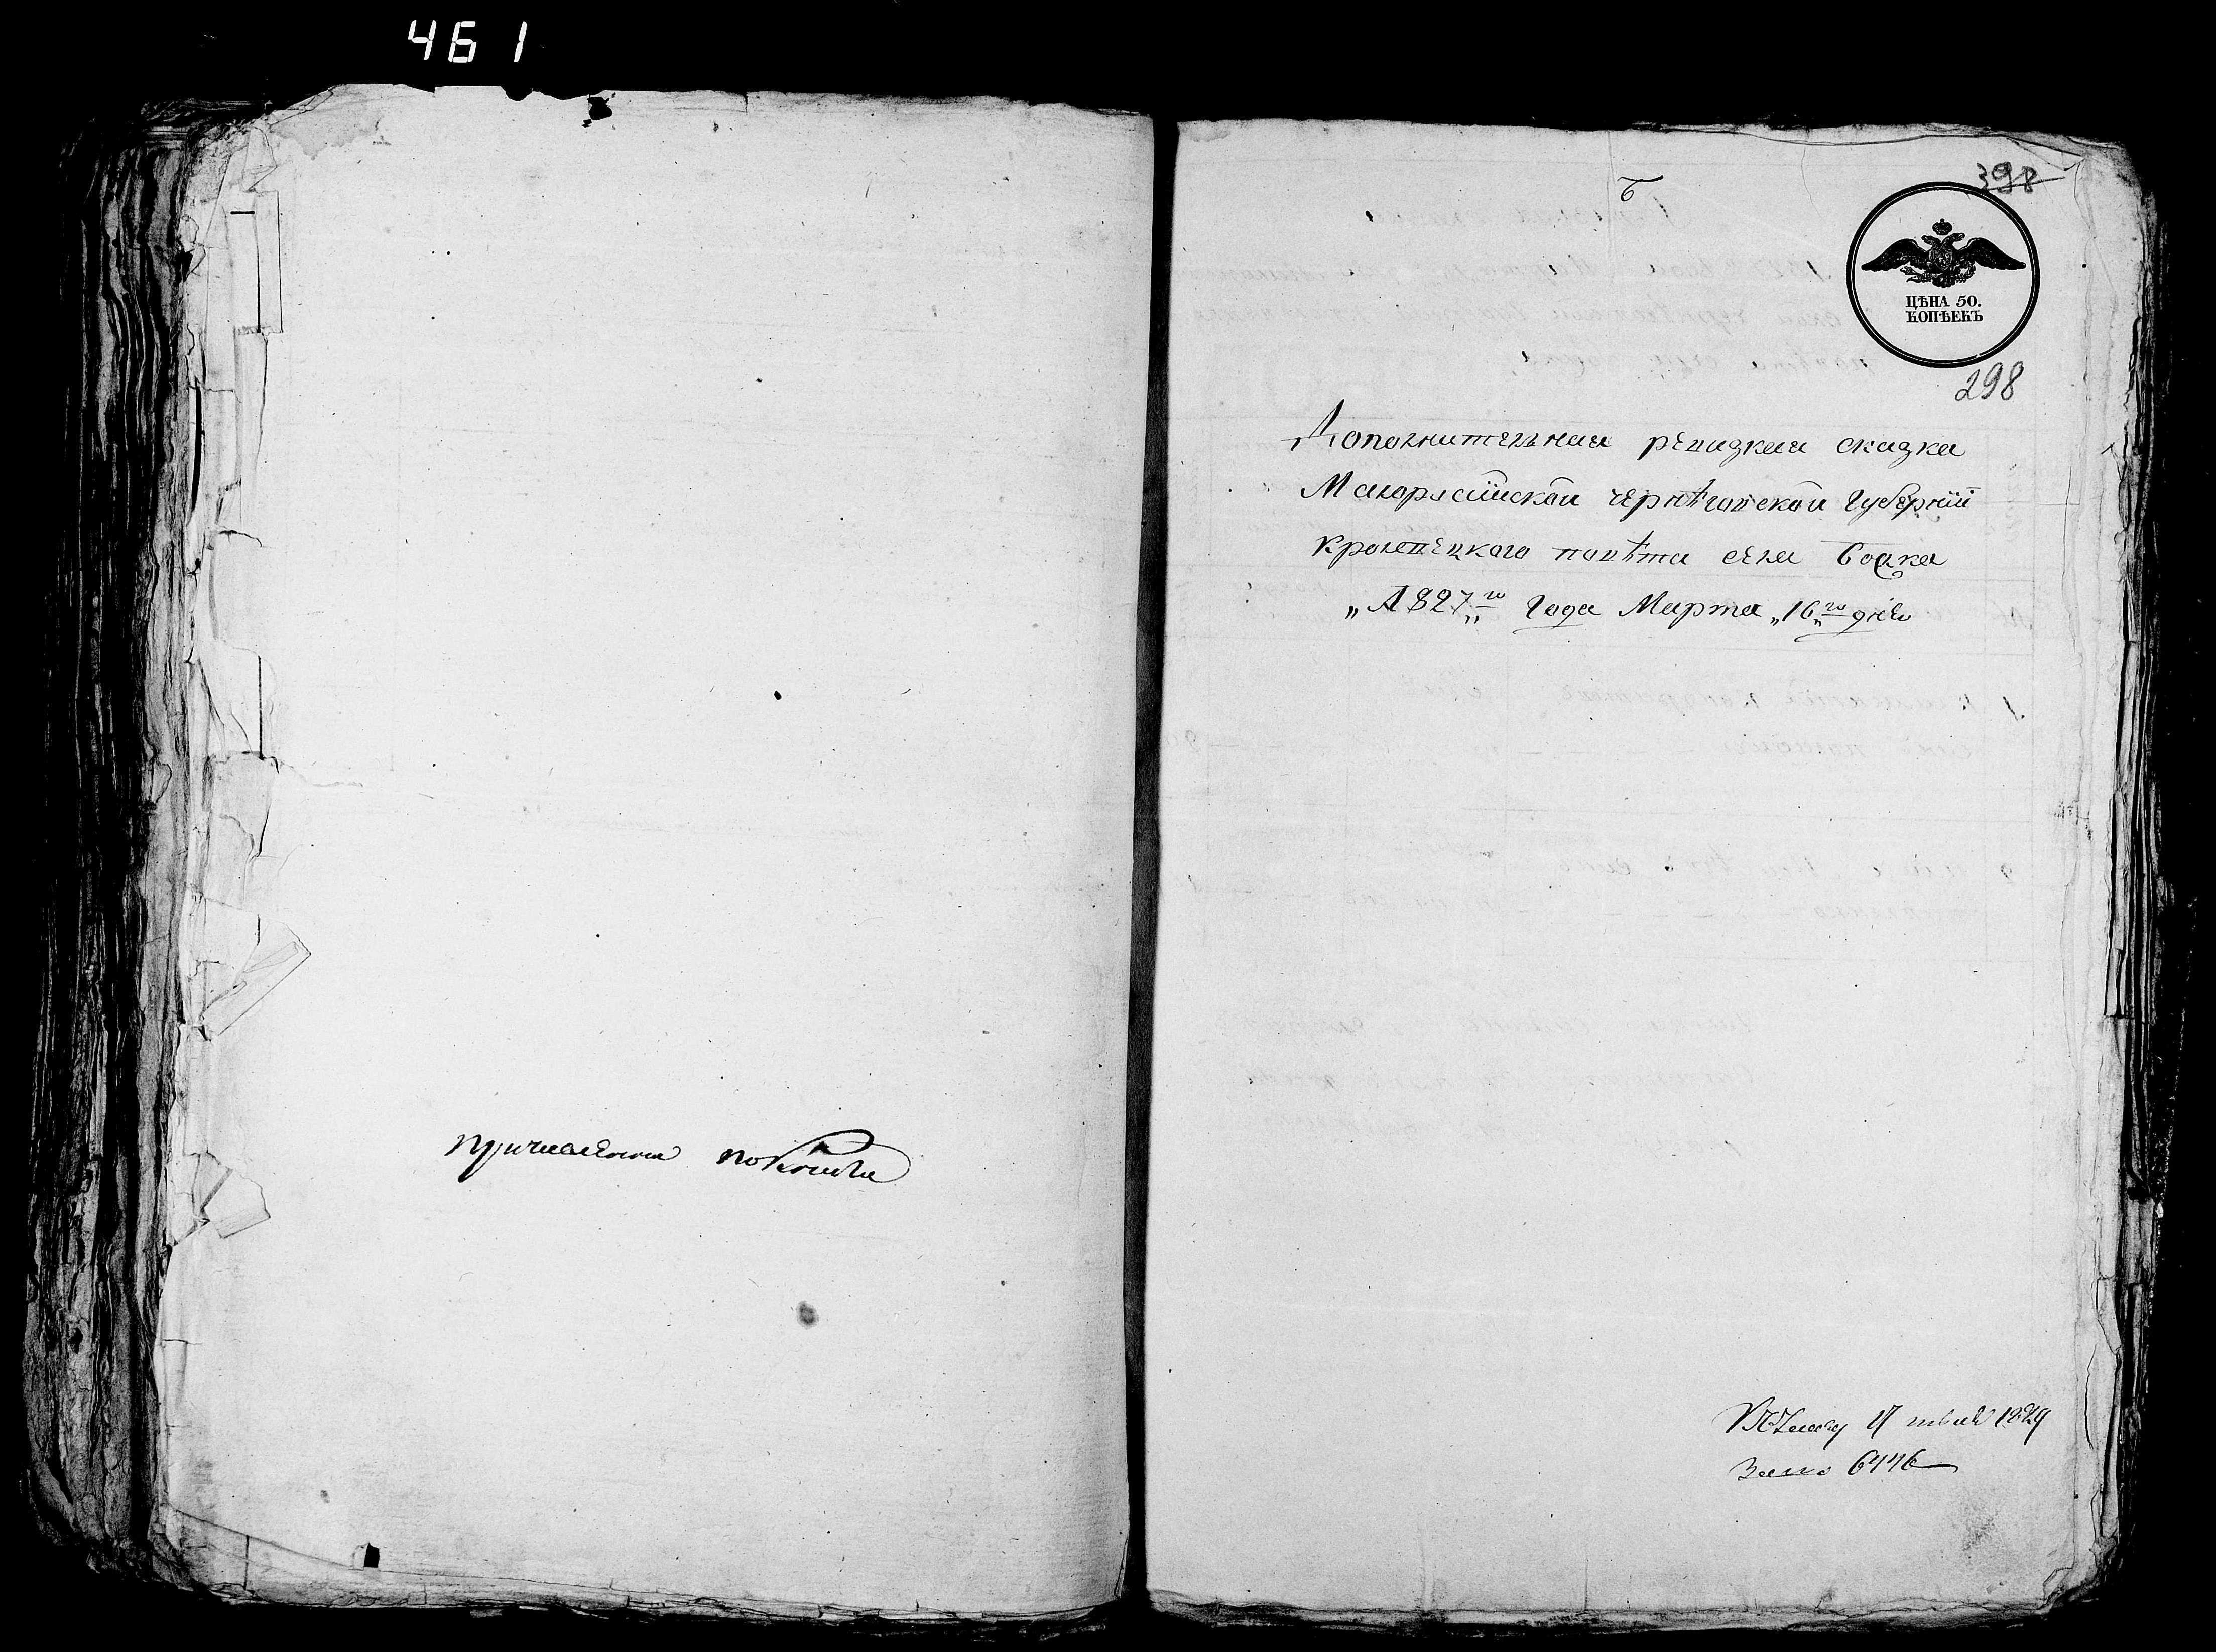 461
причислены по книги
б
398
ЦѢНА 50.
КОПѢЕКЪ
298
Дополнителная ревизкая сказка
Малорасийской чернѣговской Губернии
кролевецкого повѣта села
„1827го„ Года Марта „16„го дня
17 1829
6446